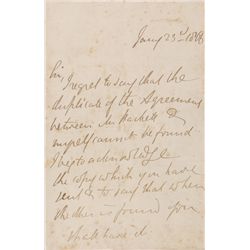 Jany 23rd 188
Sir,
I regret to say that the
duplicate of the Agreement
between Mr Hackett &
myself cannot be found
I beg to acknowledge
the copy which you have
sent & to say that when
the other is found you
shall have it